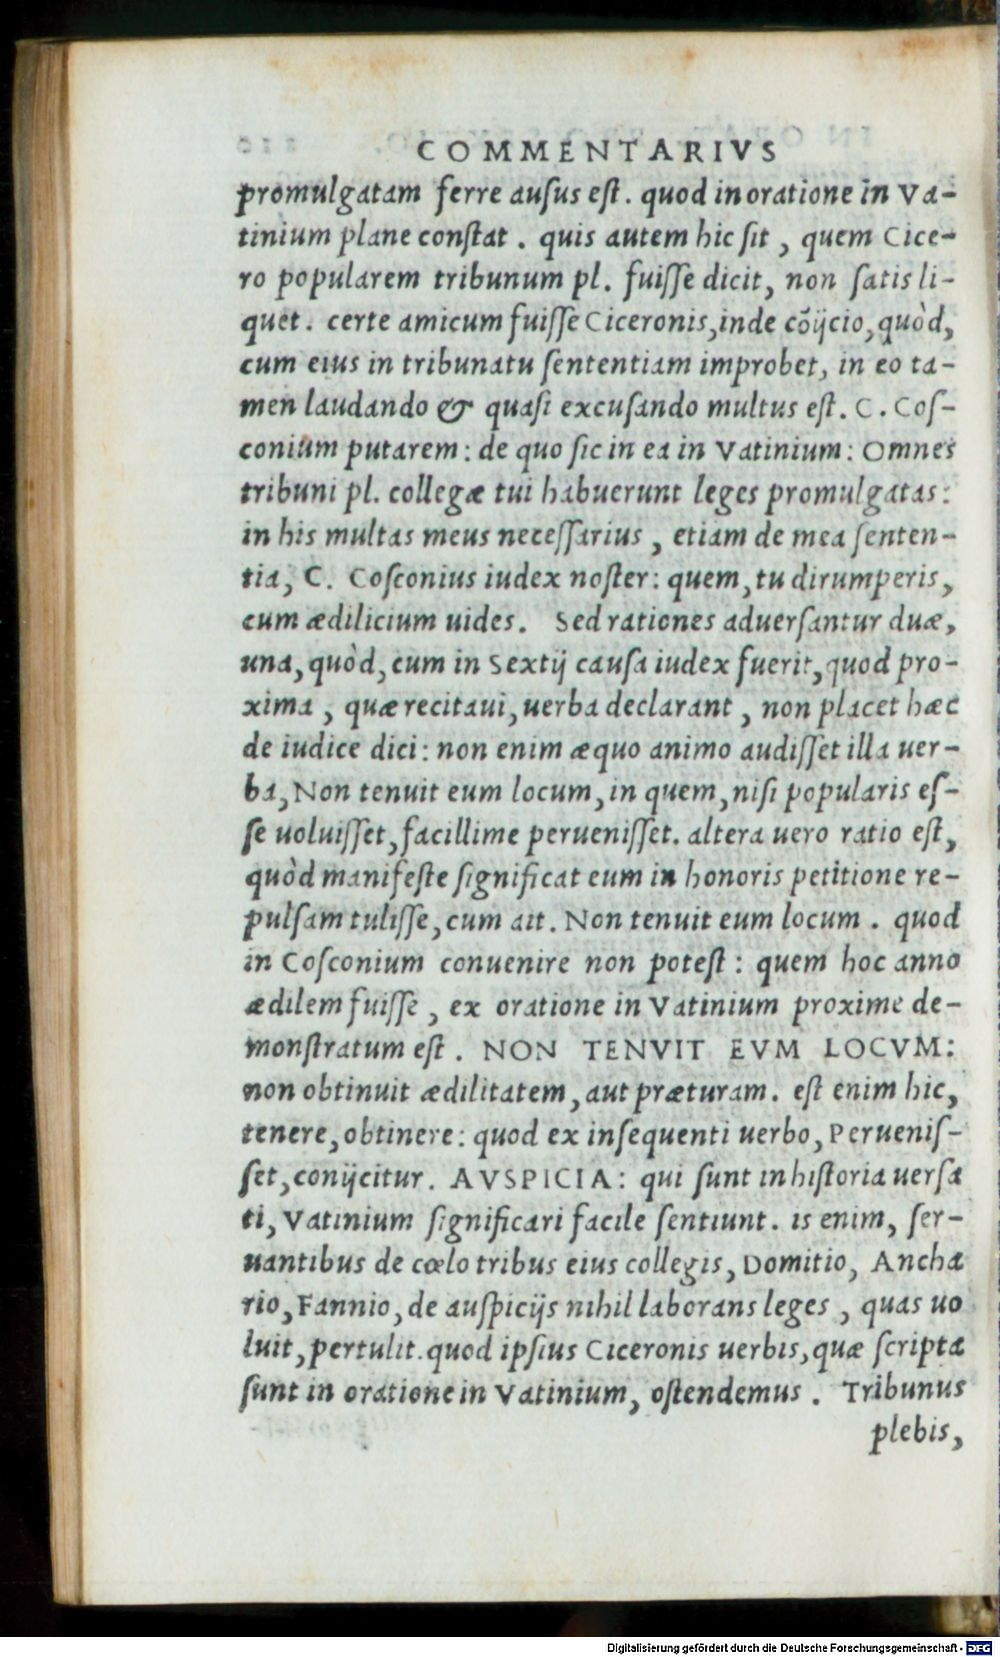 COMMENTARIVS
promulgatam ferre auſus eſt. quod in oratione in Va-
tinium plane conſtat. quis autem hic ſit, quem Cice-
ro popularem tribunum pl. fuiſſe dicit, non ſatis li-
quet. certe amicum fuiſſe Ciceronis, inde cõijcio, quòd,
cum eius in tribunatu ſententiam improbet, in eo ta-
men laudando & quaſi excuſando multus eſt. C. Coſ-
conium putarem: de quo ſic in ea in Vatinium: Omnes
tribuni pl. collegæ tui habuerunt leges promulgatas:
in his multas meus neceſſarius, etiam de mea ſenten-
tia, C. Coſconius iudex noſter: quem, tu dirumperis,
cum ædilicium uides. Sed rationes aduerſantur duæ,
una, quòd, cum in Sextij cauſa iudex fuerit, quod pro-
xima, quæ recitaui, uerba declarant, non placet hæc
de iudice dici: non enim æquo animo audiſſet illa uer-
ba, Non tenuit eum locum, in quem, niſi popularis eſ-
ſe uoluiſſet, facillime perueniſſet. altera uero ratio eſt,
quòd manifeſte ſignificat eum in honoris petitione re-
pulſam tuliſſe, cum ait. Non tenuit eum locum. quod
in Coſconium conuenire non poteſt: quem hoc anno
ædilem fuiſſe, ex oratione in Vatinium proxime de-
monſtratum eſt. NON TENVIT EVM LOCVM:
non obtinuit ædilitatem, aut præturam. eſt enim hic,
tenere, obtinere: quod ex inſequenti uerbo, Perueniſ-
ſet, conijcitur. AVSPICIA: qui ſunt in hiſtoria uerſa
ti, Vatinium ſignificari facile ſentiunt. is enim, ſer-
uantibus de cœlo tribus eius collegis, Domitio, Ancha
rio, Fannio, de auſpicijs nihil laborans leges, quas uo
luit, pertulit. quod ipſius Ciceronis uerbis, quæ ſcripta
ſunt in oratione in Vatinium, oſtendemus. Tribunus
plebis,
Digitalisierung gefördert durch die Deutsche Forschungsgemeinschaft - DFG